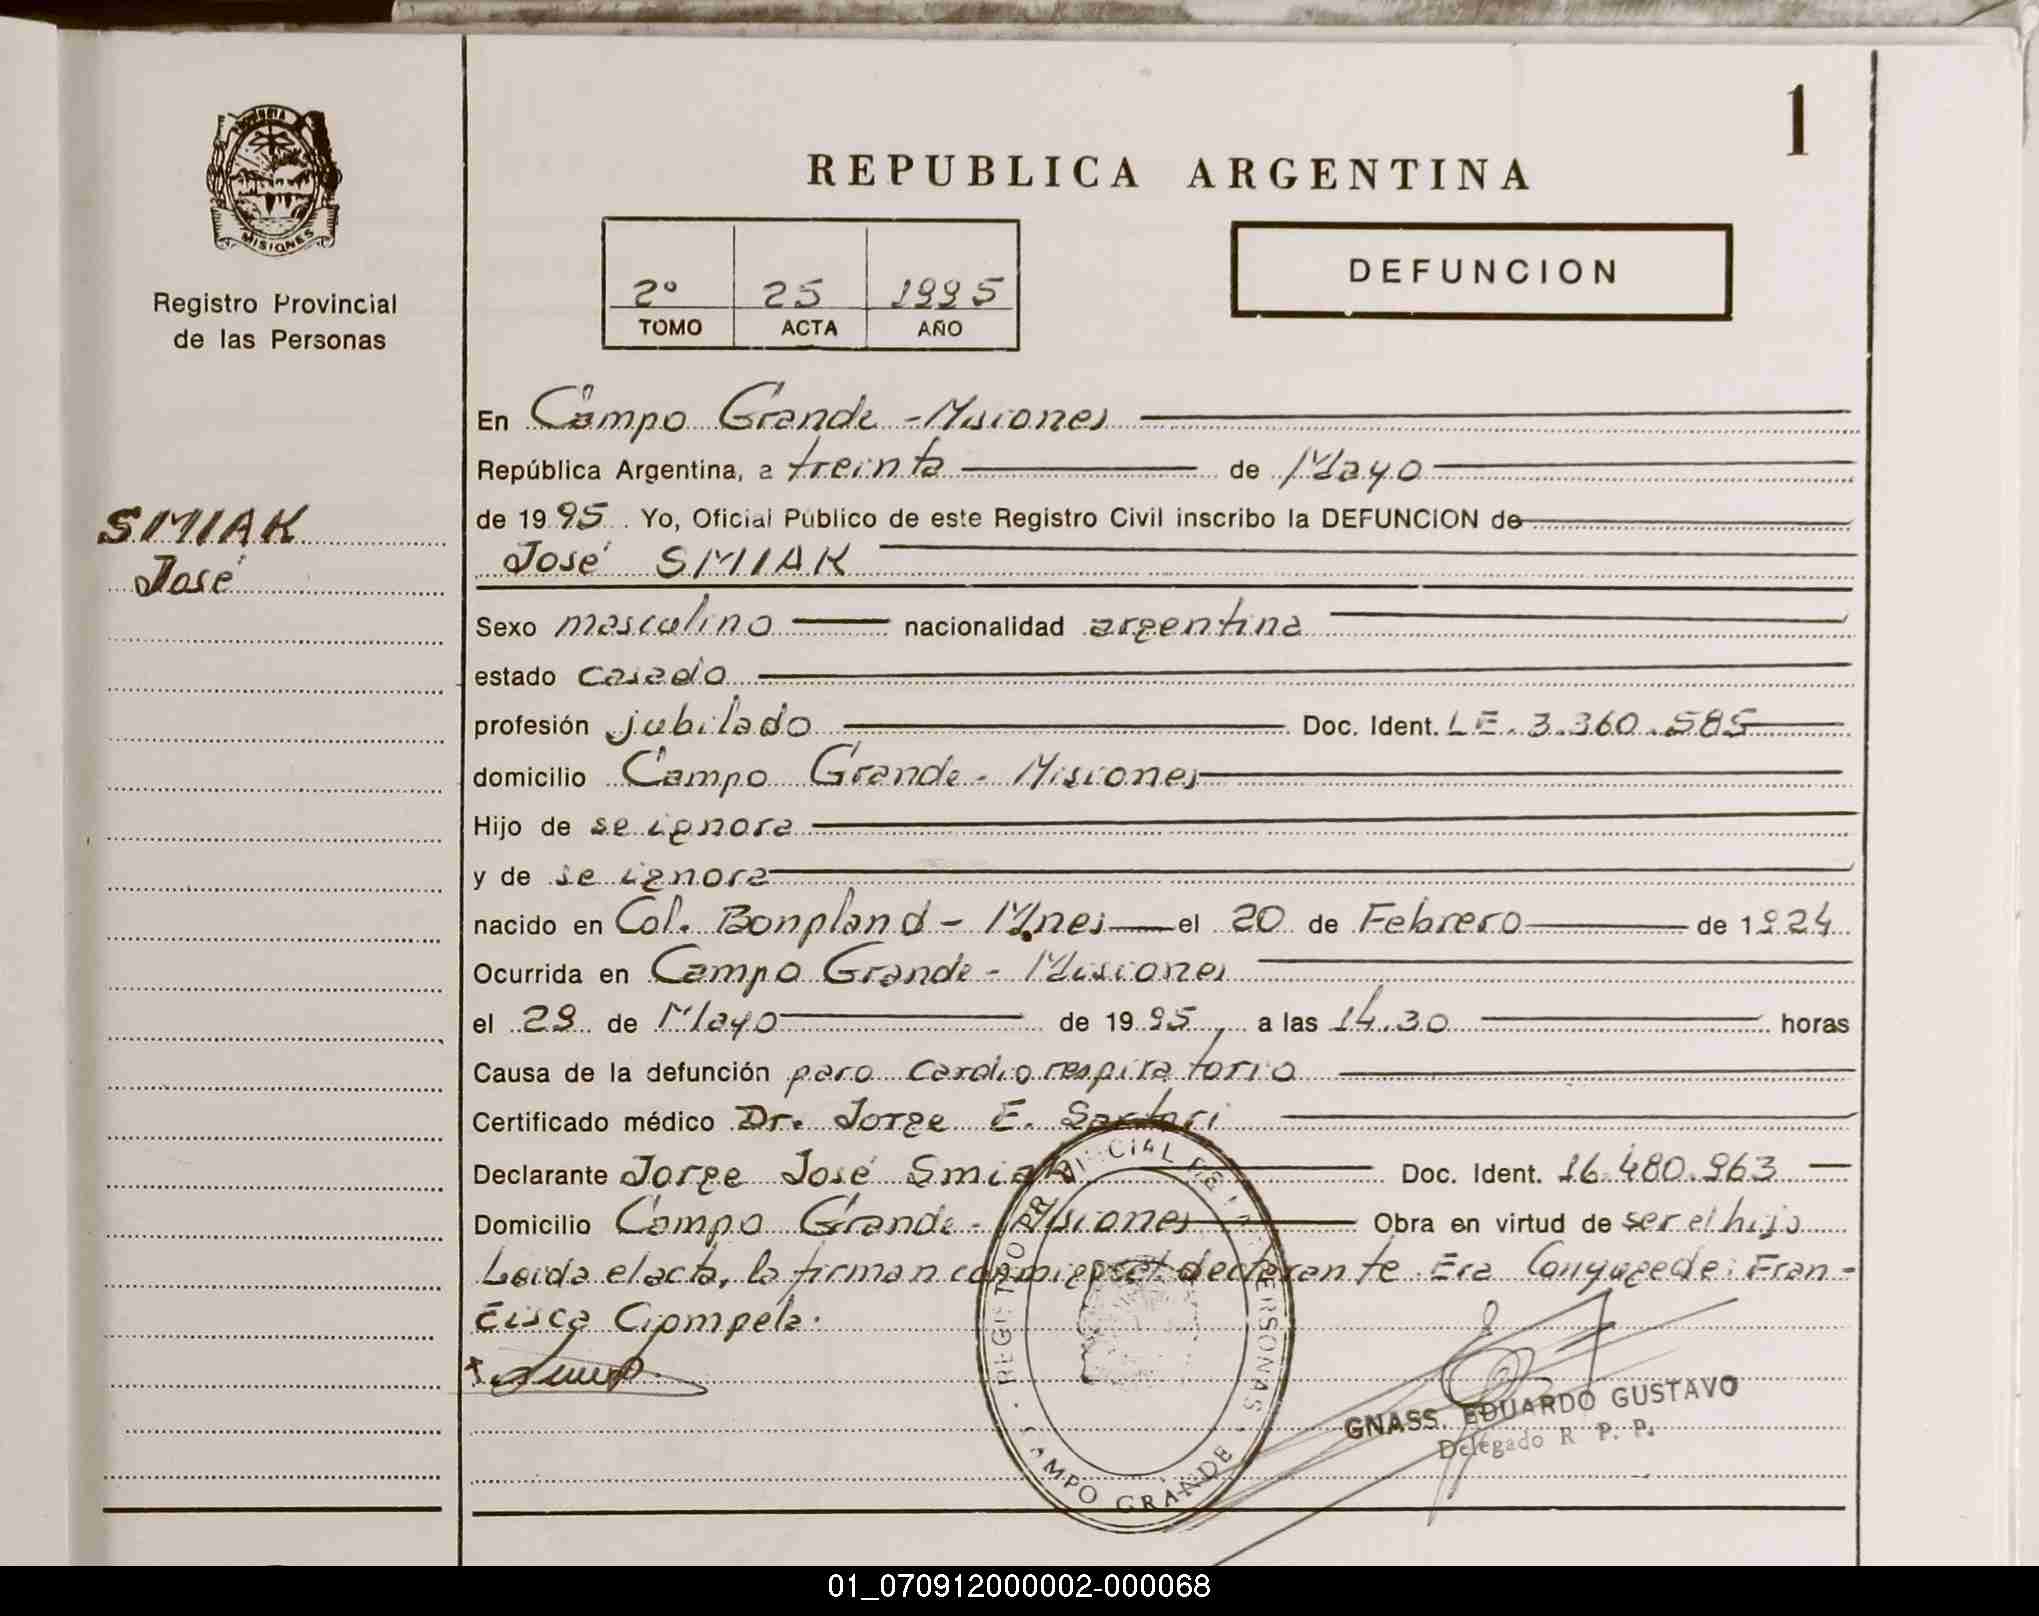 1
REPUBLICA ARGENTINA
MISIONES
Registro Provincial
de las Personas
2º 25 1995
TOMO ACTA AÑO
DEFUNCION
SMIAK
José
En Campo Grande - Misiones
República Argentina, a treinta de Mayo
de 1995. Yo, Oficial Público de este Registro Civil inscribo la DEFUNCION de
José SMIAK
Sexo masculino nacionalidad argentina
estado casado
profesión jubilado Doc. Ident. LE. 3.360.585
domicilio Campo Grande - Misiones
Hijo de se ignora
y de se ignora
nacido en Col. Bonpland - Mnes el 20 de Febrero de 1924
Ocurrida en Campo Grande - Misiones
el 29 de Mayo de 1995, a las 14.30 horas
Causa de la defunción paro cardiorespiratorio
Certificado médico Dr. Jorge E. Sartori
Declarante Jorge José Smiak Doc. Ident. 16.480.963
Domicilio Campo Grande - Misiones Obra en virtud de ser el hijo
Leida el acta, la firman conmigo el declarante. Era Conyuge de: Fran-
cisca Cipmpela.
REGISTRO PROVINCIAL DE LAS PERSONAS
CAMPO GRANDE
GNASS. EDUARDO GUSTAVO
Delegado R. P. P.
01_070912000002-000068